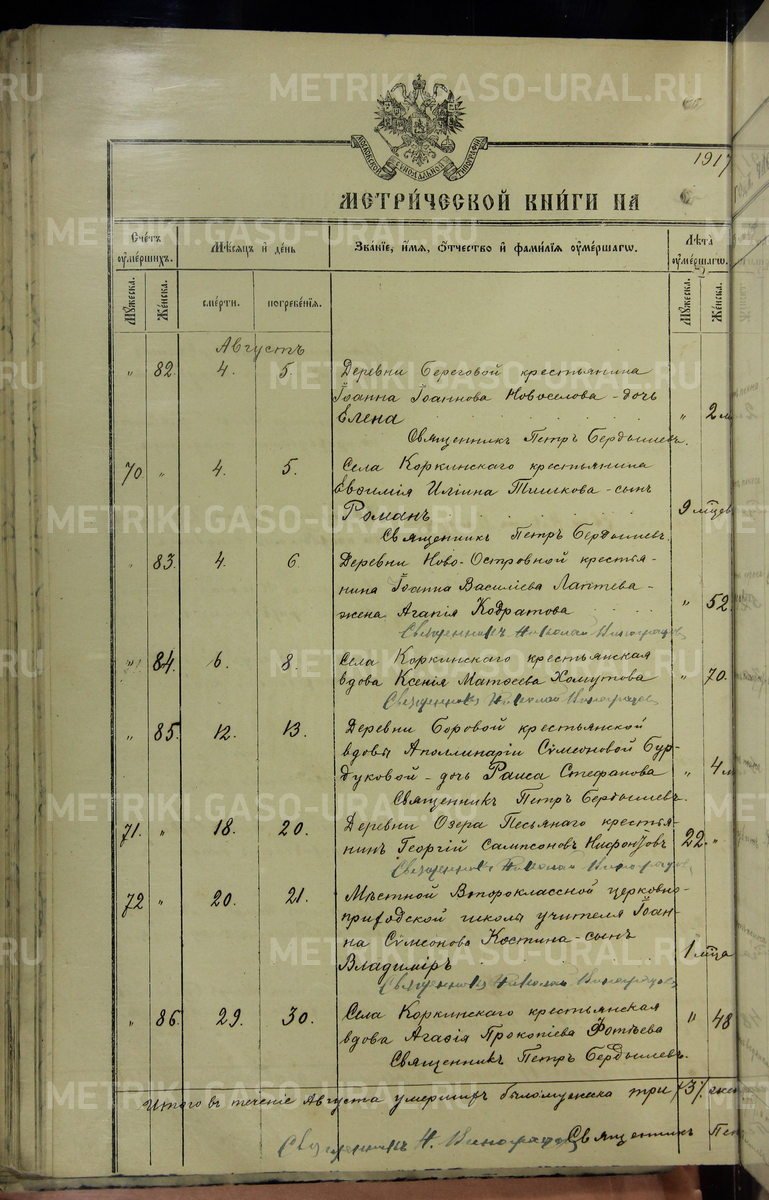 METRIKI.GASO-URAL.RU
МОСКОВСКОЙ СѴНОДАЛЬНОЙ ТИПОГРАФІИ
1917
МЕТРИ́ЧЕСКОЙ КНИ́ГИ НА
Сче́тъ ᲂу҆ме́ршихъ. Мѣ́сѧцъ и҆ де́нь Зва́нїе, и҆́мѧ, ѻ҆́тчество и҆ фамѝлїѧ ᲂу҆ме́ршагѡ. Лѣ́та ᲂу҆ме́ршагѡ.
Мꙋ́жеска. Же́нска. сме́рти. погребе́нїѧ. Мꙋ́жеска. Же́нска.
Августъ
" 82. 4. 5. Деревни Береговой крестьянина
Іоанна Іоаннова Новоселова - дочь
Елена " 2 м
Священникъ Петръ Бердышевъ.
70 " 4. 5. Села Коркинскаго крестьянина
Евѳимія Иліина Тишкова - сынъ
Романъ 9 мцев
Священникъ Петръ Бердышевъ.
" 83. 4. 6. Деревни Ново-Островной крестья-
нина Іоанна Василіева Лаптева -
жена Агапія Кодратова " 52.
Священникъ Николай Виноградовъ
" 84. 6. 8. Села Коркинскаго крестьянская
вдова Ксенія Матѳеева Хомутова " 70.
Священникъ Николай Виноградовъ
" 85. 12. 13. Деревни Боровой крестьянской
вдовы Аполлинаріи Сѵмеоновой Бур-
дуковой - дочь Раиса Стефанова " 4 м
Священникъ Петръ Бердышевъ.
71. " 18. 20. Деревни Озера Песьянаго крестья-
нинъ Георгій Сампсоновъ Нифонтовъ 22. "
Священникъ Николай Виноградовъ
72 " 20. 21. Мѣстной Второклассной церковно-
приходской школы учителя Іоан-
на Сѵмеонова Костина - сынъ
Владиміръ 1 мца
Священникъ Николай Виноградовъ
" 86. 29. 30. Села Коркинскаго крестьянская
вдова Агаѳія Прокопіева Фотѣева " 48
Священникъ Петръ Бердышевъ.
Итого въ теченіе Августа умершихъ было мужеска три /3/ жен
Священникъ Н. Виноградовъ Священникъ Пет